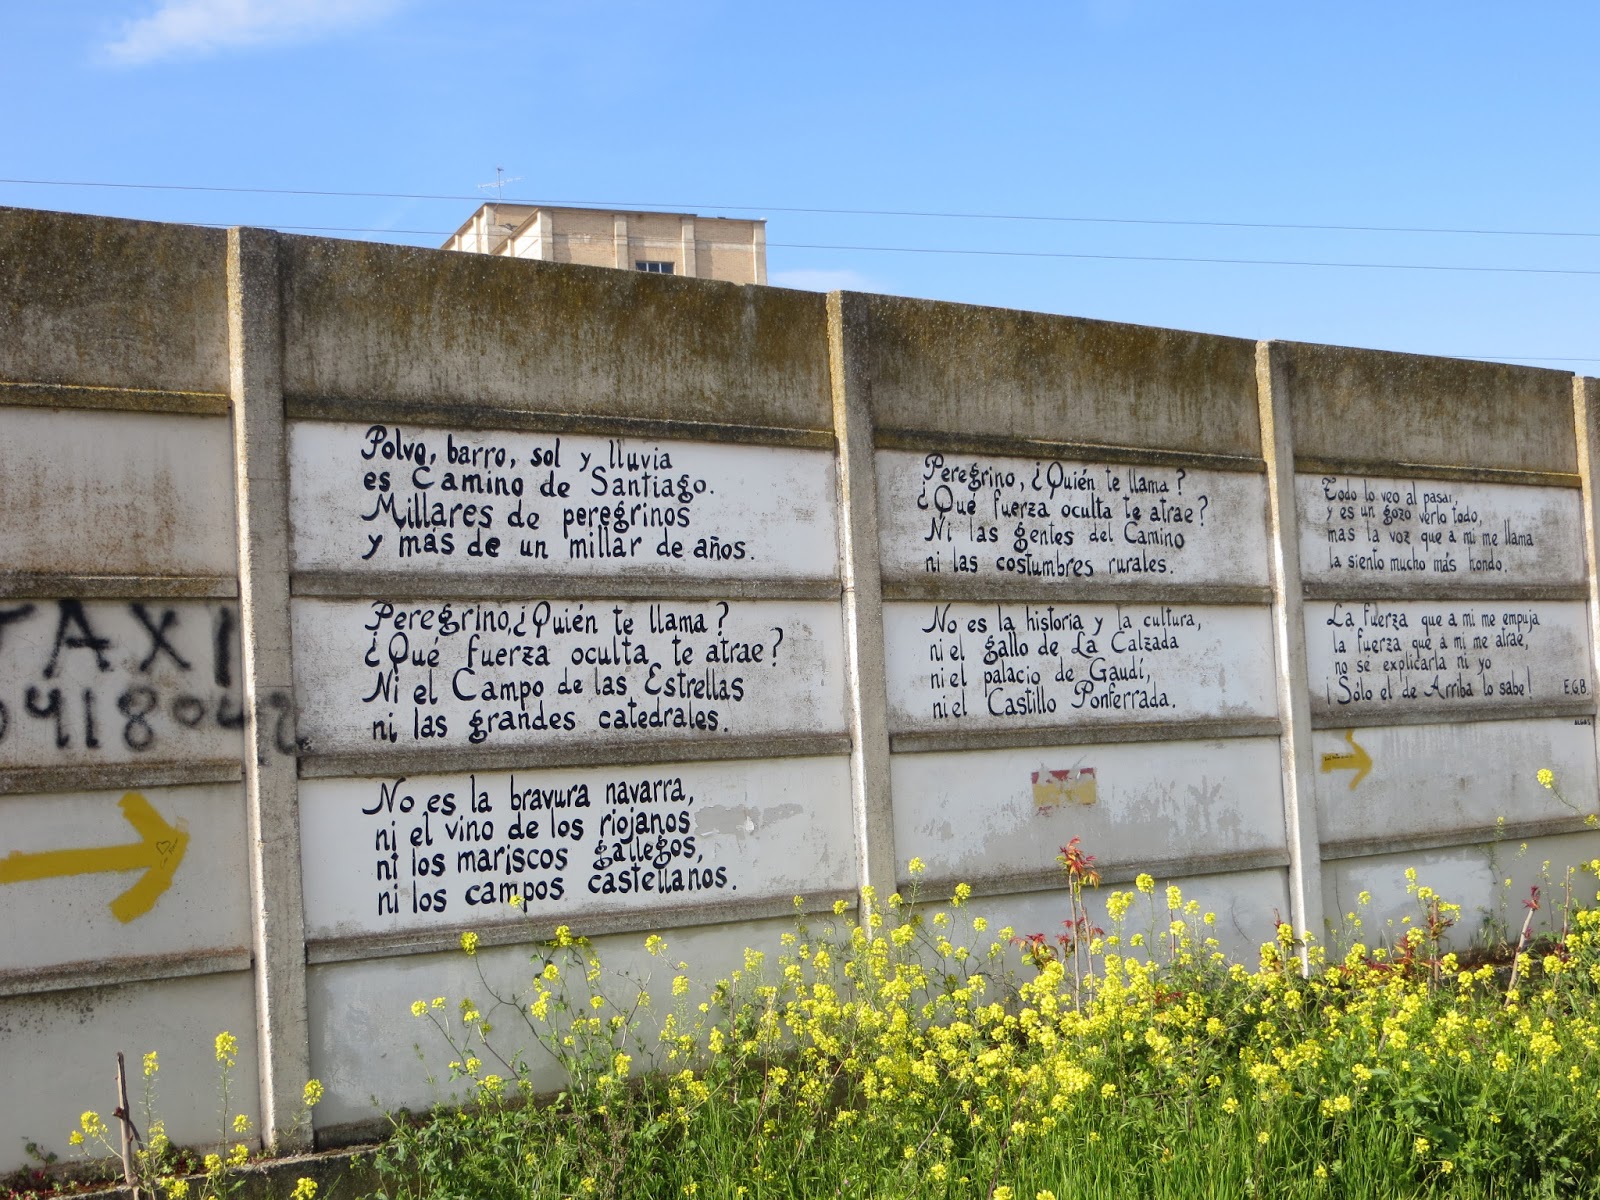 TAXI
Polvo, barro, sol y lluvia
es Camino de Santiago.
Millares de peregrinos
y mas de un millar de años.
Peregrino, ¿Quién te llama?
¿Que fuerza oculta te atrae?
Ni el Campo de las Estrellas
ni las grandes catedrales.
No es la bravura navarra,
ni el vino de los riojanos
ni los mariscos gallegos,
ni los campos castellanos.
Peregrino, ¿Quién te llama?
¿Que fuerza oculta te atrae?
Ni las gentes del Camino
ni las costumbres rurales.
No es la historia y la cultura,
ni el gallo de La Calzada
ni el palacio de Gaudí,
ni el Castillo Ponferrada.
Todo lo veo al pasar,
y es un gozo verlo todo,
mas la voz que a mi me llama
la siento mucho más hondo.
La fuerza que a mi me empuja
la fuerza que a mi me atrae,
no sé explicarla ni yo
¡Sólo el de Arriba lo sabe!
E.G.B.